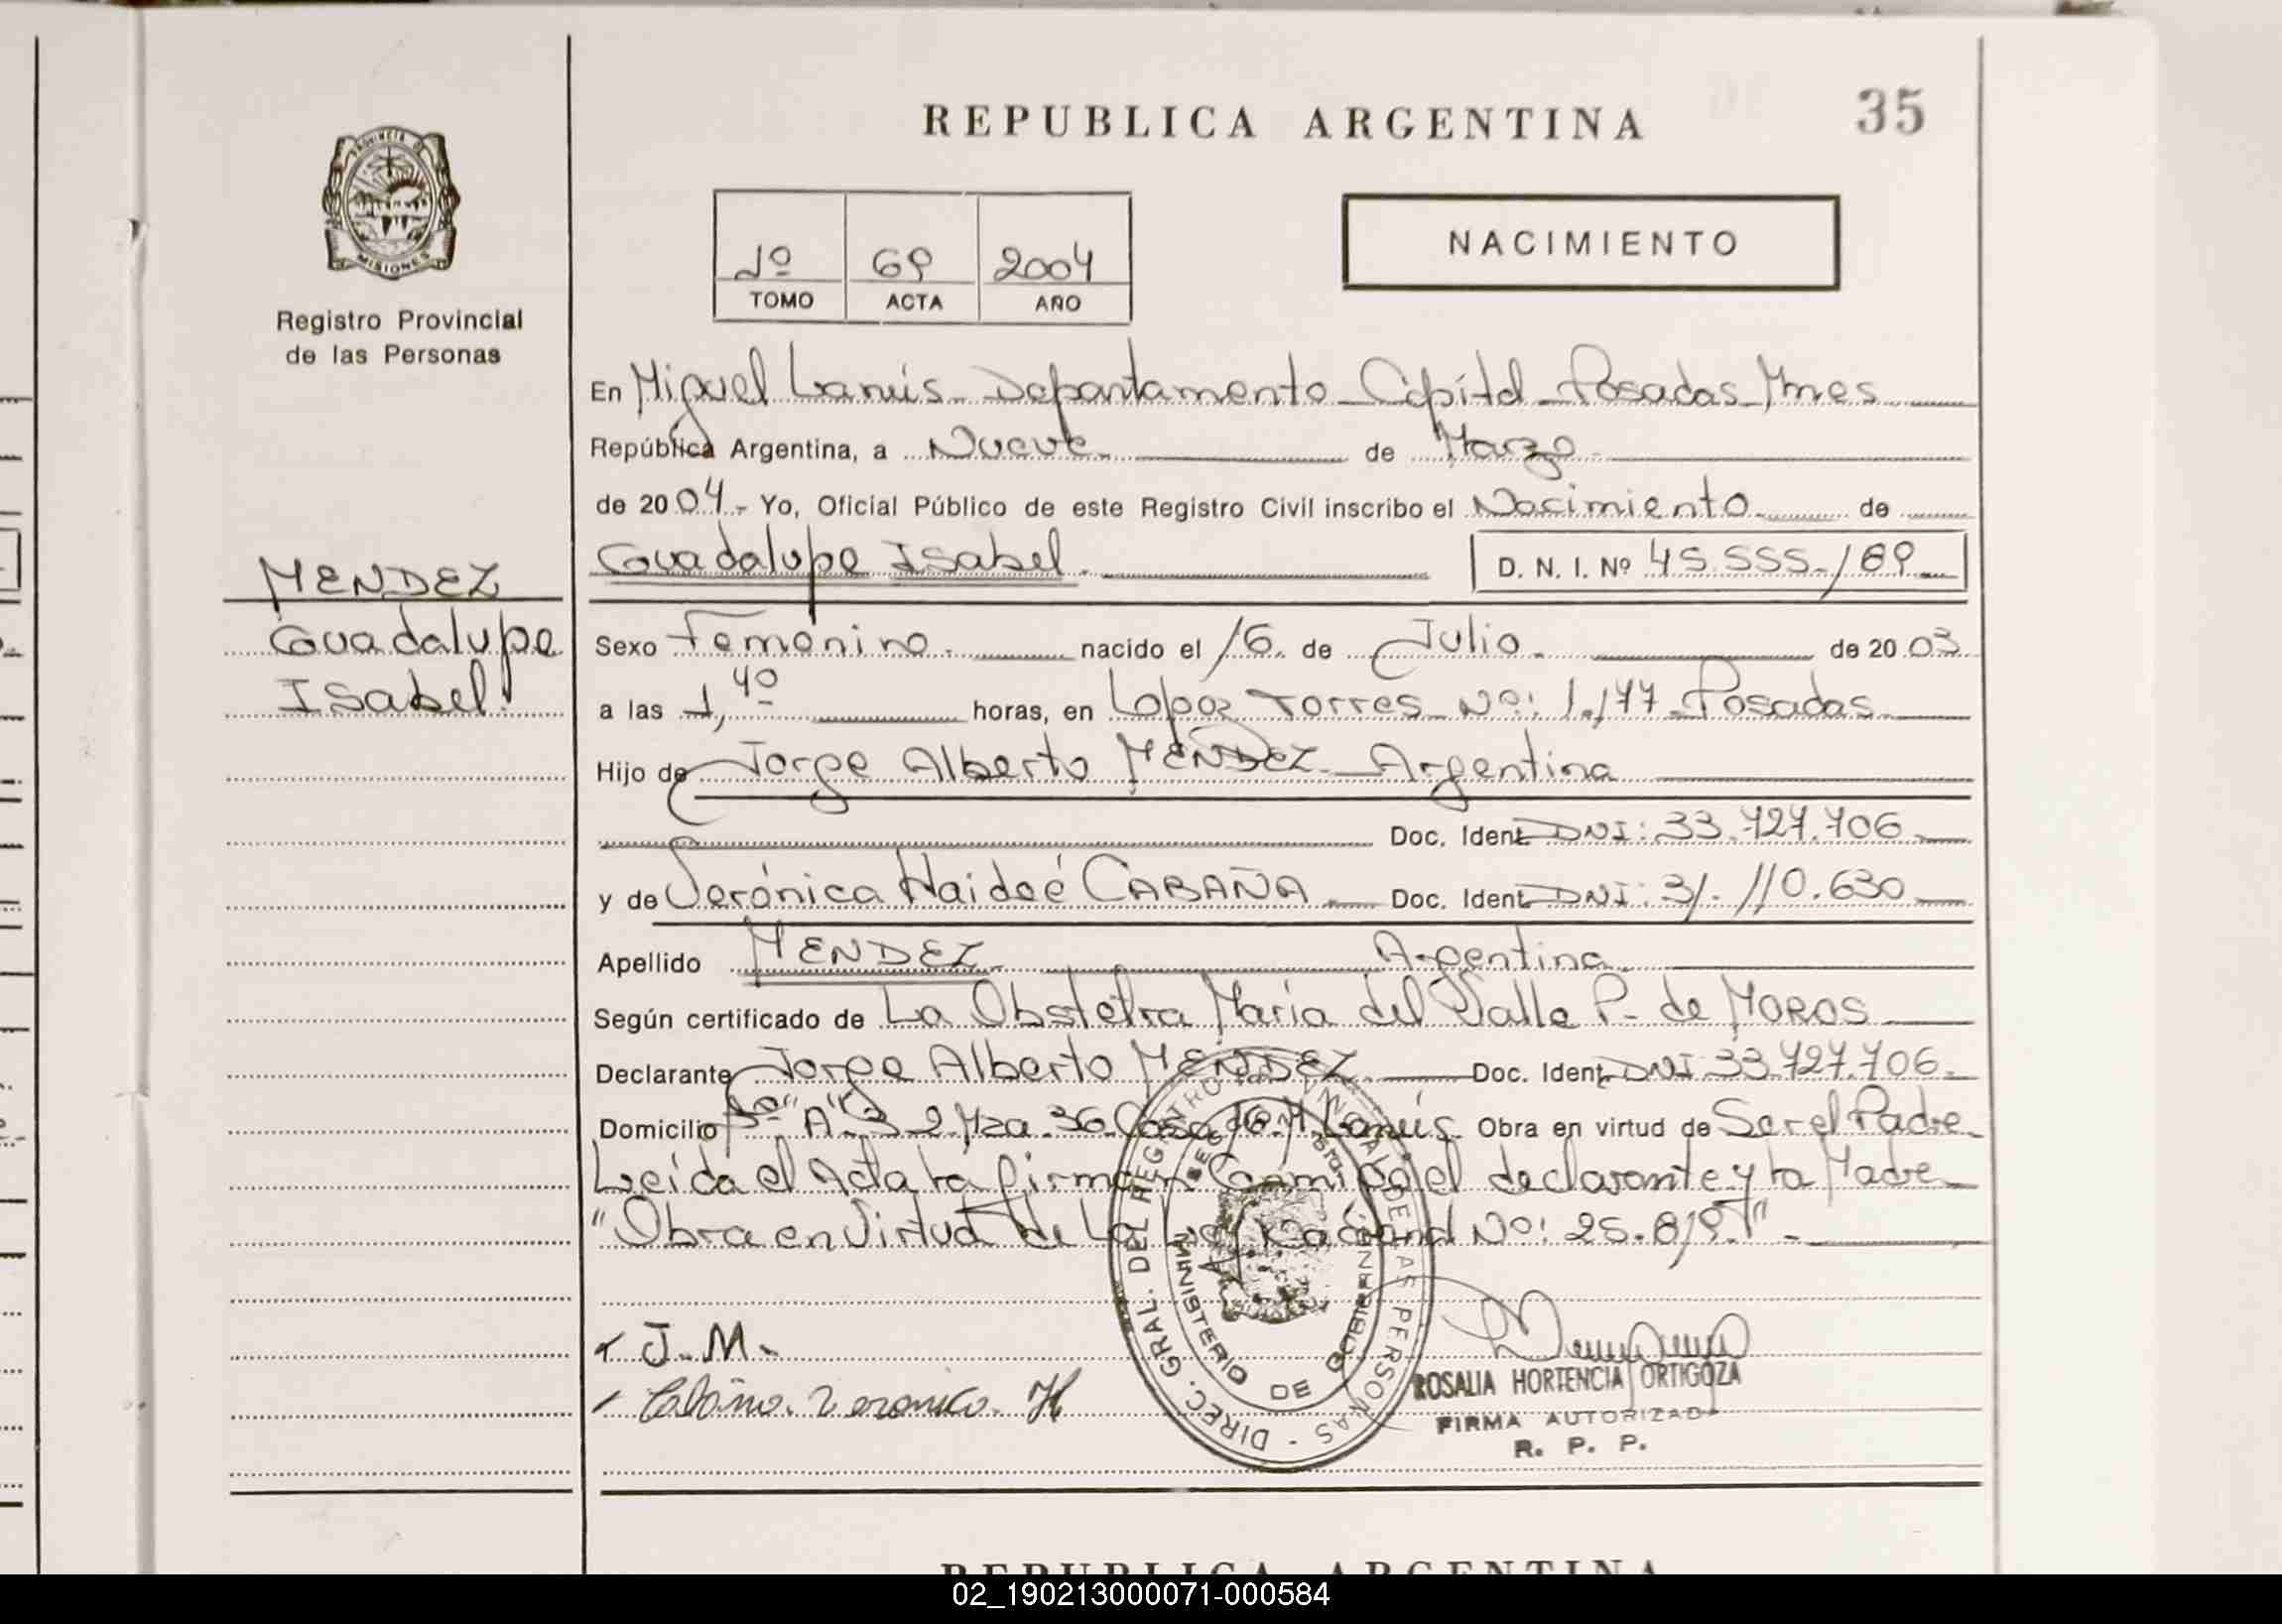 REPUBLICA ARGENTINA
35
PROVINCIA DE
MISIONES
Registro Provincial
de las Personas
1º 69 2004
TOMO ACTA AÑO
NACIMIENTO
En Miguel Lanús - Departamento Capital - Posadas Mnes
República Argentina, a Nueve de Marzo
de 2004.- Yo, Oficial Público de este Registro Civil inscribo el Nacimiento de
Guadalupe Isabel. D. N. I. Nº 45.555.189
MENDEZ
Guadalupe
Isabel.
Sexo Femenino. nacido el 16 de Julio. de 2003
a las 1,40 horas, en Lopez Torres Nº: 1.177 Posadas
Hijo de Jorge Alberto MENDEZ - Argentina
Doc. Ident. DNI: 33.727.706
y de Verónica Haideé CABAÑA Doc. Ident. DNI: 31.110.630
Apellido MENDEZ Argentina
Según certificado de La Obstetra María del Valle P. de MOROS
Declarante Jorge Alberto MENDEZ Doc. Ident. DNI 33.727.706.
Domicilio Bº "A" 3 2 Mza. 36 Casa 16. M. Lanús. Obra en virtud de Ser el Padre
Leída el Acta la firman Conmigo el declarante y la Madre
"Obra en Virtud de La Ley Nacional Nº: 25.819."
J. M.
Cabaña. Veronica. H
DIREC. GRAL. DEL REGISTRO PROVINCIAL DE LAS PERSONAS
MINISTERIO DE GOBIERNO
ROSALIA HORTENCIA ORTIGOZA
FIRMA AUTORIZADA
R. P. P.
REPUBLICA ARGENTINA
02_190213000071-000584